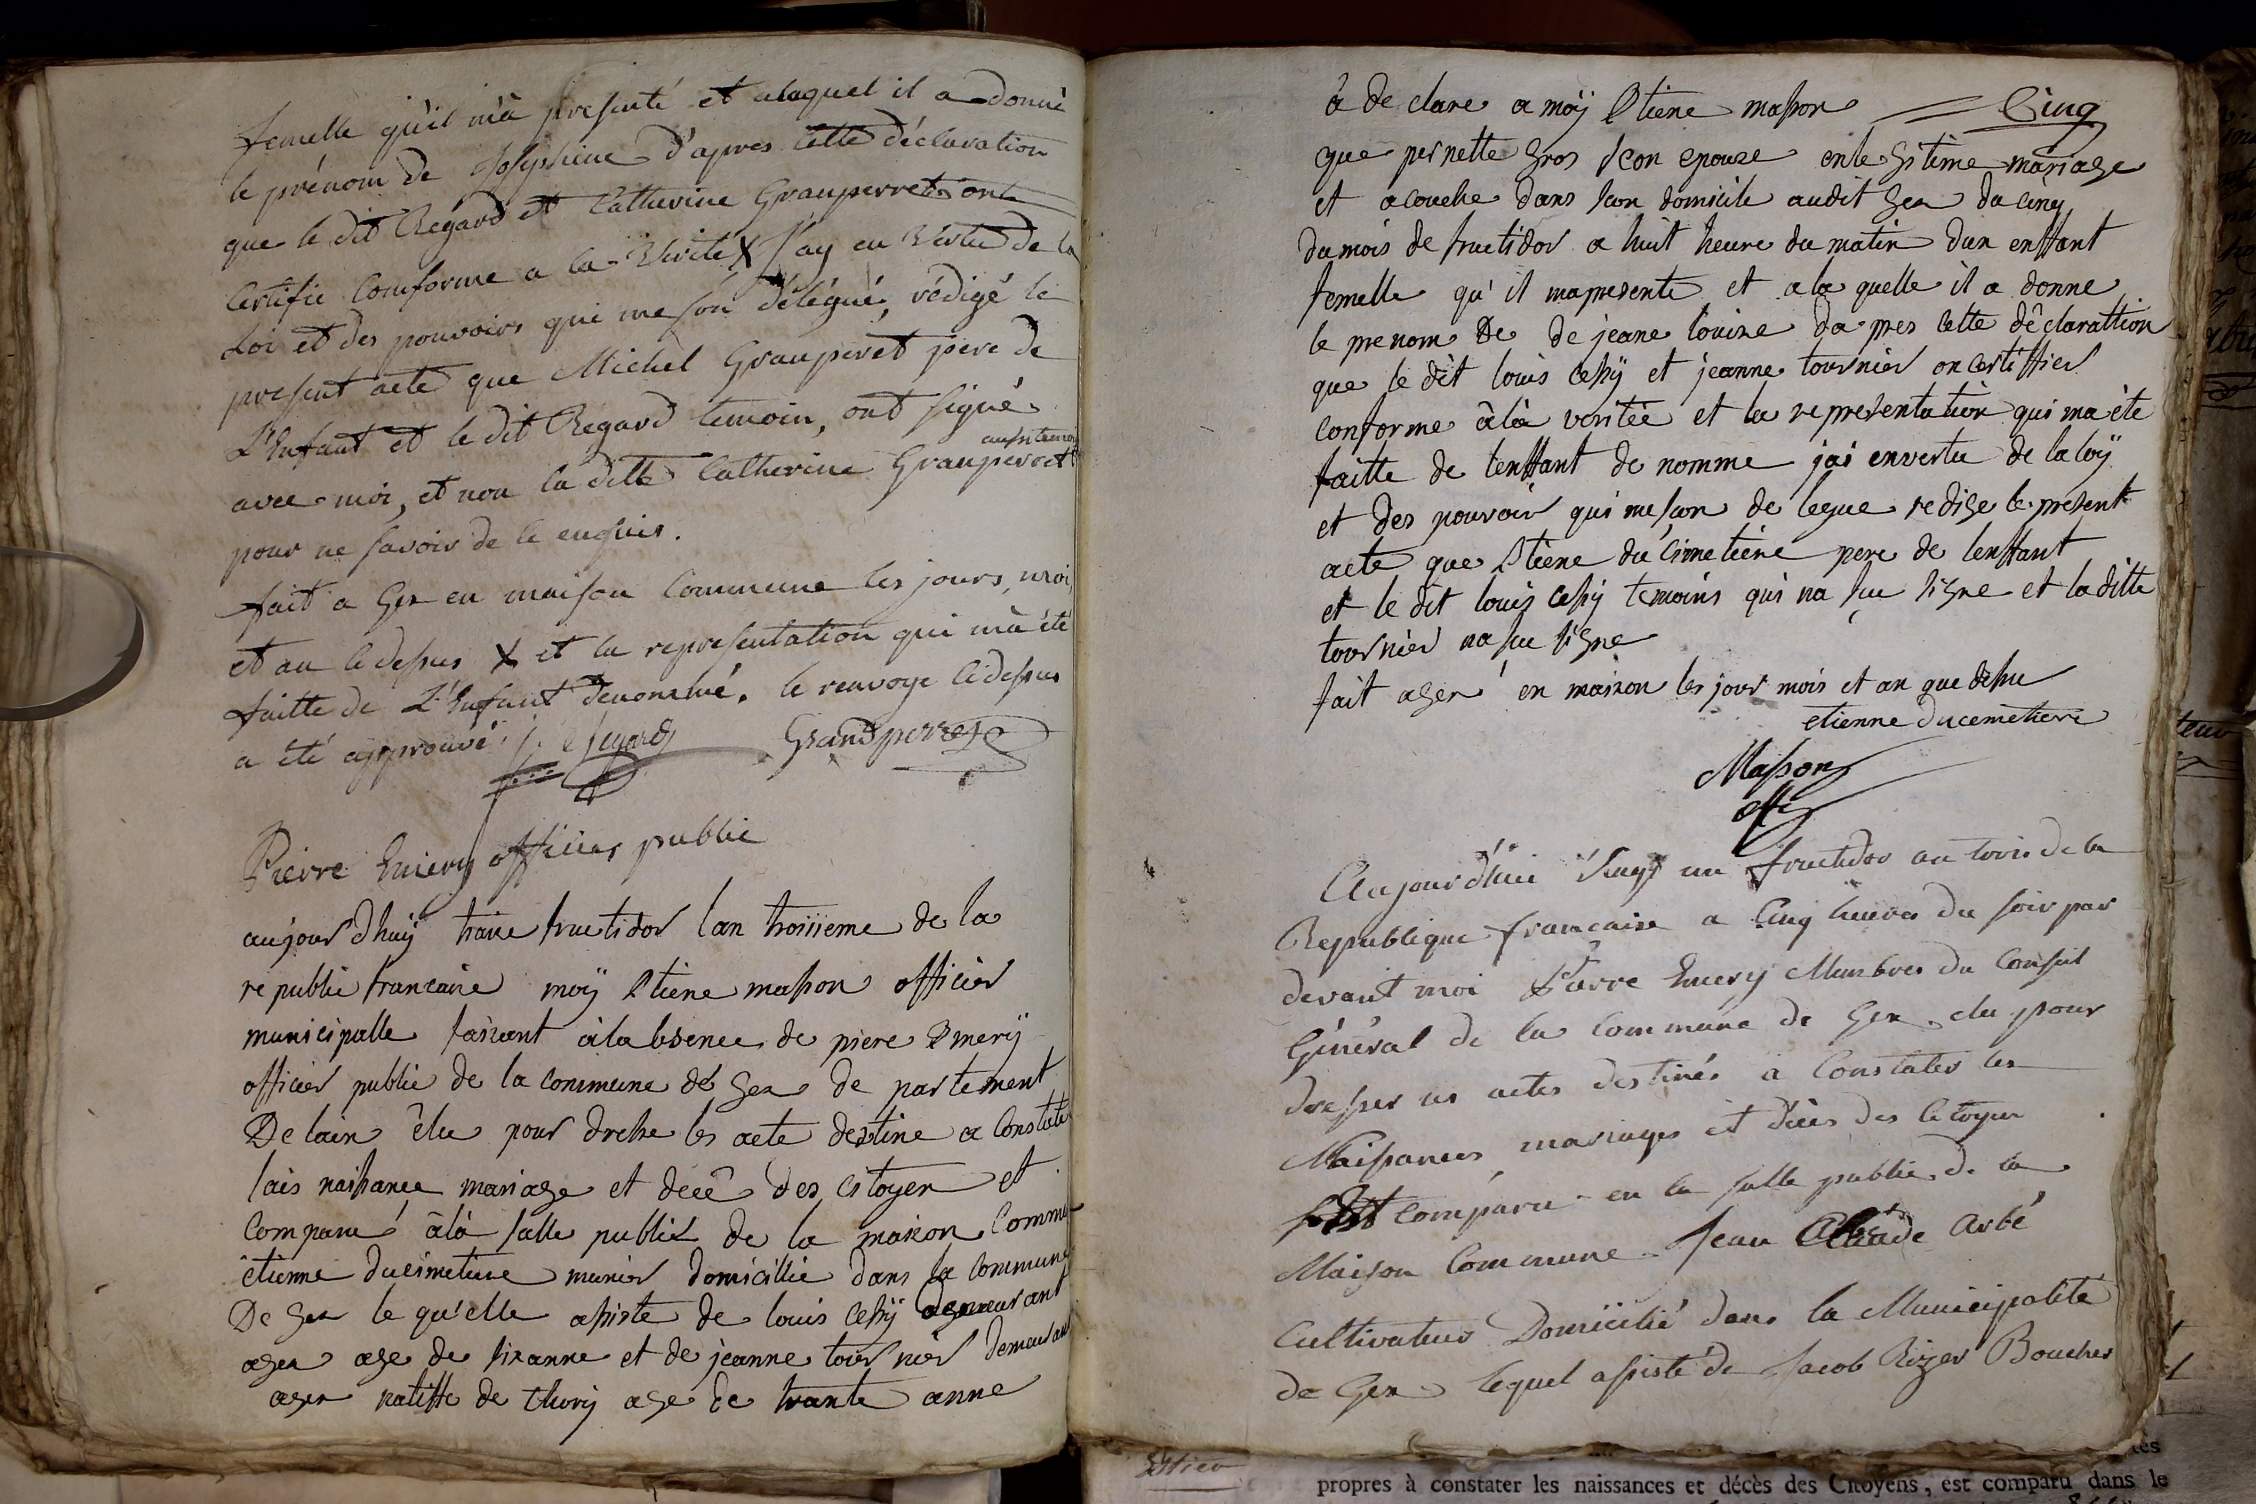 femelle qu'il m'à presenté et alaquel il a donné
le prénom de Josephine d'apres cette déclaration
que le dit Regard et Catherine Grauperret ont
Certifie Comforme a la Verité X J'ay en Vertu de la
Loi et des pouvoirs qui me són délégué, rédigé le
present acte que Michel Grauperet pere de
L'Enfant et le dit Regard temoin, ont signé
aussi temoin
avec moi, et non la ditte Catherine Grauperret
pour ne savoir de le enquis.
fait a Gex en maison Commune les jours, moi,
et an cidessus X et la representation qui m'à été
faitte de L'Enfant denommé. le renvoye cidessus
a été approuvé J. Regard Grandperret
Pierre Emery officier public
aujourdhuÿ traize fructidor lan troisieme de la
republic francaise moÿ Etiene masson officier
municipalle faisant à la bsence de piere Emerÿ
officier public de la commune de Gex de partement
De lain élu pour dresse les acte destine a Constate
lais naissance mariage et decê des citoyen et
Comparu à là salle public de la maison Commu
étienne ducimetiere munier domicillie dans la commune
De Gex le qu'elle assiste de louis Cessÿ demeurant
agex age de sixanne et de jeanne tournier demeurant
agex natiffe de thory age de trante anne
à de clare a moÿ Etiene masson Cinq
que pernette gros son epouze enlegitime mariage
et acouche dans son domicile audit Gex du cinq
du mois de fructidor a huit heure du matin dun enffant
femelle qu'il mapresente et ala quelle il a donne
le prenom De de jeane louize da pres cette déclarattion
que le dit louis Cessÿ et jeanne tournier on certiffier
conforme àlà veritée et la representation qui ma éte
faitte de lenffant de nomme jai envertu de la loÿ
et des pouvoir qui me son de legue redige le present
acte que Etiene du cimetiere pere de lenffant
et le dit louis Cessÿ temoins qui na su signe et laditte
tournier na su signe
fait agex en maison les jour mois et an que dessu
etienne ducemetiere
Masson
offi
Aujourd'hui Vingt un fructidor an trois de la
Republique francaise a Cinq heures du soir par
devant moi Pierre Emery Membres du Conseil
Général de la Commune de Gex elu pour
dresser les actes destinés a Constater les
Naissances mariages et décès des Citoyen
Est comparu en la salle public de la
Maison Commune Jean Claude Arbé
Cultivateur Domicilié dans la Municipalité
de Gex lequel assisté de Jacob Rizer Boucher
propres à constater les naissances et décès des Citoyens, est comparu dans le